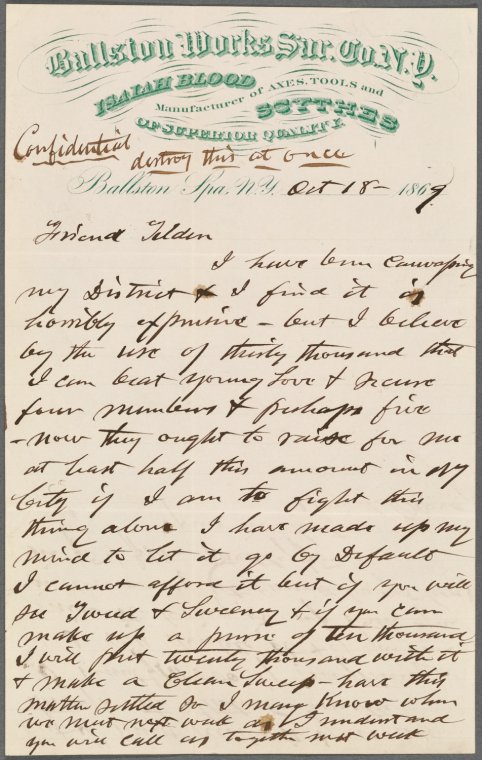 Ballston Works Sar. Co. N.Y.
ISAIAH BLOOD
Manufacturer of AXES, TOOLS and
SCYTHES
OF SUPERIOR QUALITY.
Confidential
destroy this at once
Ballston Spa, N.Y. Oct 18 - 1869
Friend Tilden
I have been Canvassing
my District & I find it is
horribly expensive - but I believe
by the use of thirty thousand that
I can beat young Love & secure
four members & perhaps five
- now they ought to raise for me
at least half this amount in NY
City if I am to fight this
thing alone I have made up my
mind to let it go by Default
I cannot afford it but if you will
see Tweed & Sweeney & if you can
make up a purse of ten thousand
I will put twenty thousand with it
& make a Clean Sweep - have this
matter settled so I may Know when
we meet next week as I understand
you will call us together next week